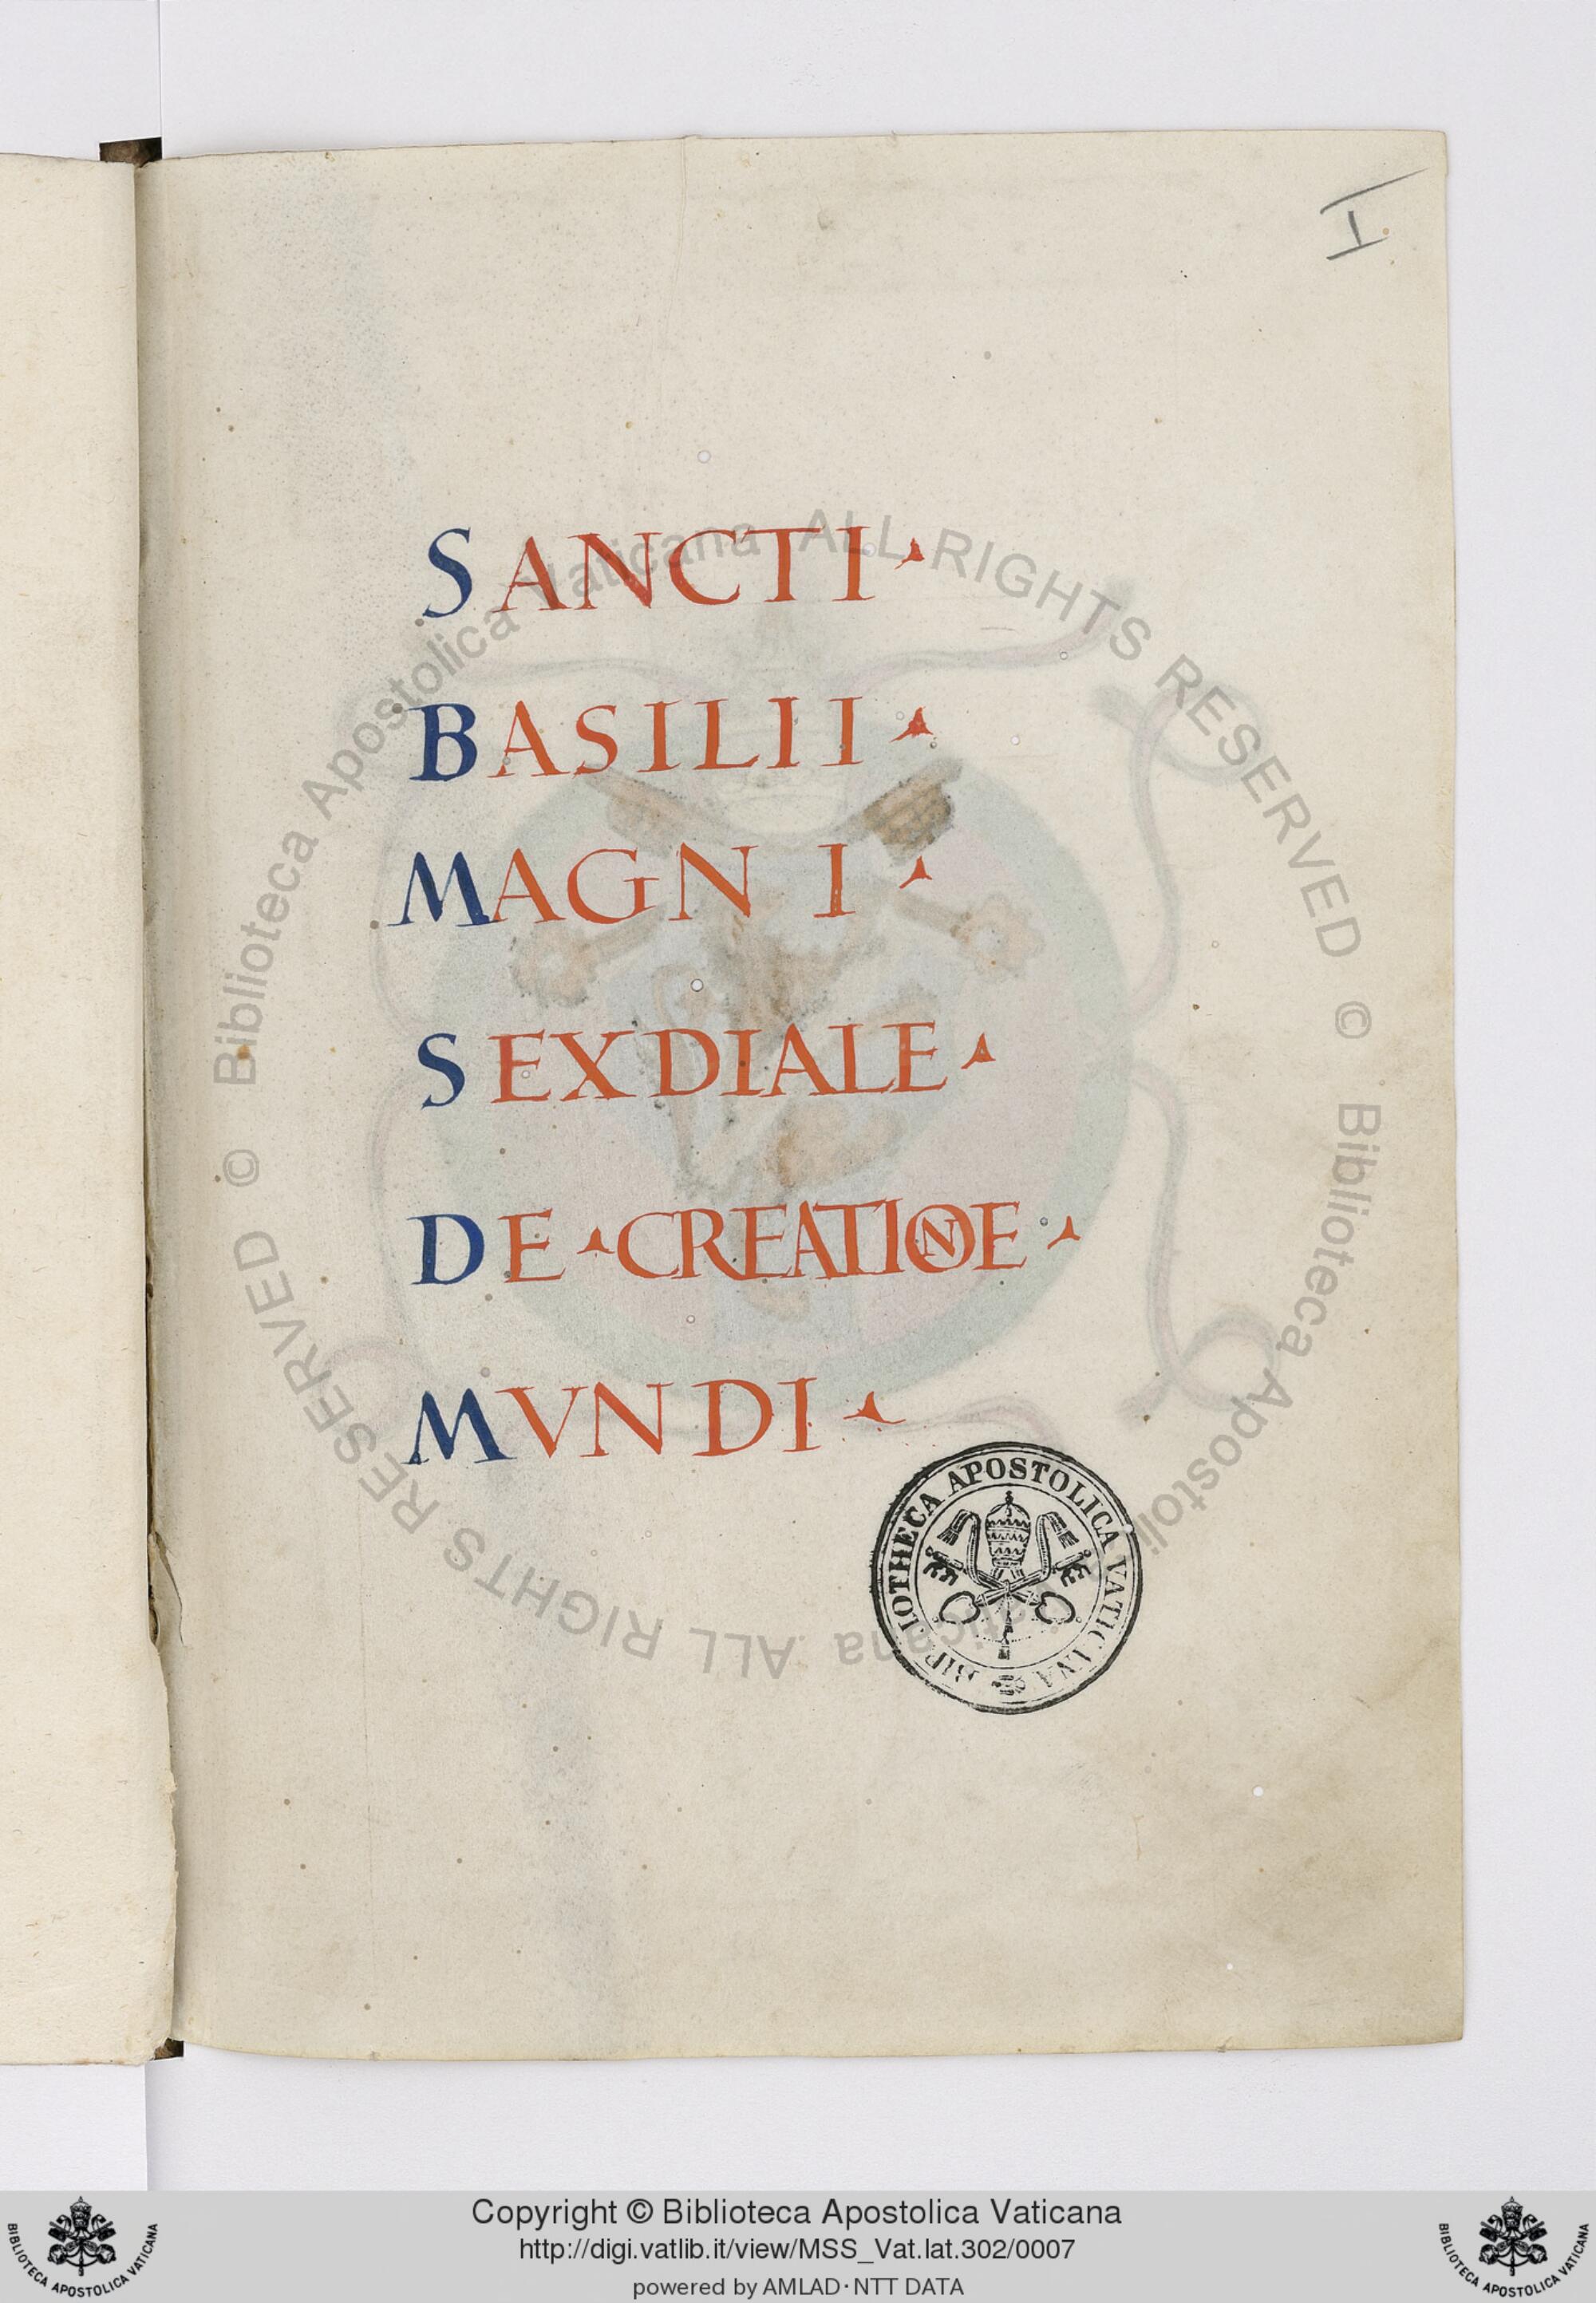 I
SANCTI
BASILII
MAGNI
SEXDIALE
DE CREATIONE
MVNDI
BIBLIOTHECA APOSTOLICA VATICANA
© Biblioteca Apostolica Vaticana ALL RIGHTS RESERVED
© Biblioteca Apostolica Vaticana ALL RIGHTS RESERVED
Copyright © Biblioteca Apostolica Vaticana
http://digi.vatlib.it/view/MSS_Vat.lat.302/0007
powered by AMLAD·NTT DATA
BIBLIOTECA APOSTOLICA VATICANA
BIBLIOTECA APOSTOLICA VATICANA